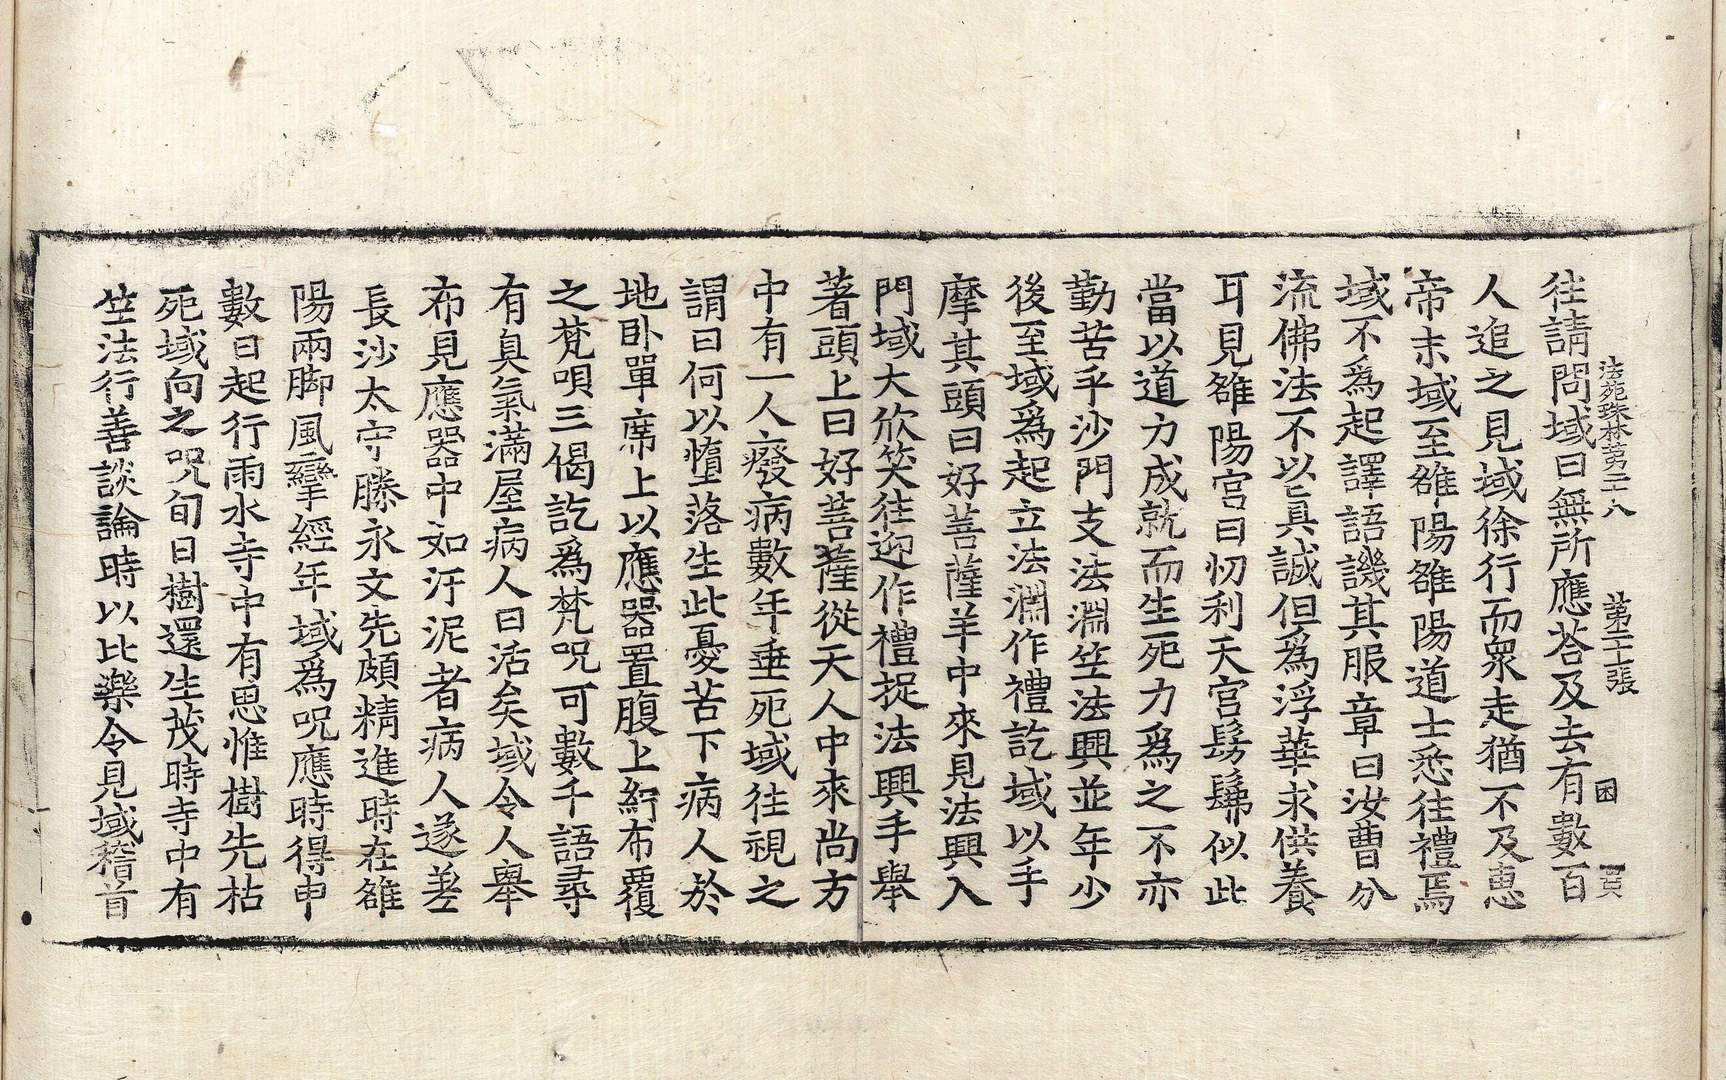 法苑珠林第二十八 第二十張 困 一百
往請問域曰無所應荅及去有數百
人追之見域徐行而衆走猶不及惠
帝末域至雒陽雒陽道士悉往禮焉
域不爲起譯語譏其服章曰汝曹分
流佛法不以真誠但爲浮華求供養
耳見雒陽宮曰忉利天宮髣髴似此
當以道力成就而生死力爲之不亦
勤苦乎沙門支法淵竺法興並年少
後至域爲起立法淵作禮訖域以手
摩其頭曰好菩薩羊中來見法興入
門域大欣笑往迎作禮捉法興手舉
著頭上曰好菩薩從天人中來尚方
中有一人癈病數年垂死域往視之
謂曰何以墮落生此憂苦下病人於
地卧單席上以應器置腹上紵布覆
之梵唄三偈訖爲梵呪可數千語尋
有臭氣滿屋病人曰活矣域令人舉
布見應器中如汙泥者病人遂差
長沙太守滕永文先頗精進時在雒
陽兩脚風攣經年域爲呪應時得申
數日起行雨水寺中有思惟樹先枯
死域向之呪旬日樹還生茂時寺中有
竺法行善談論時以比樂令見域稽首